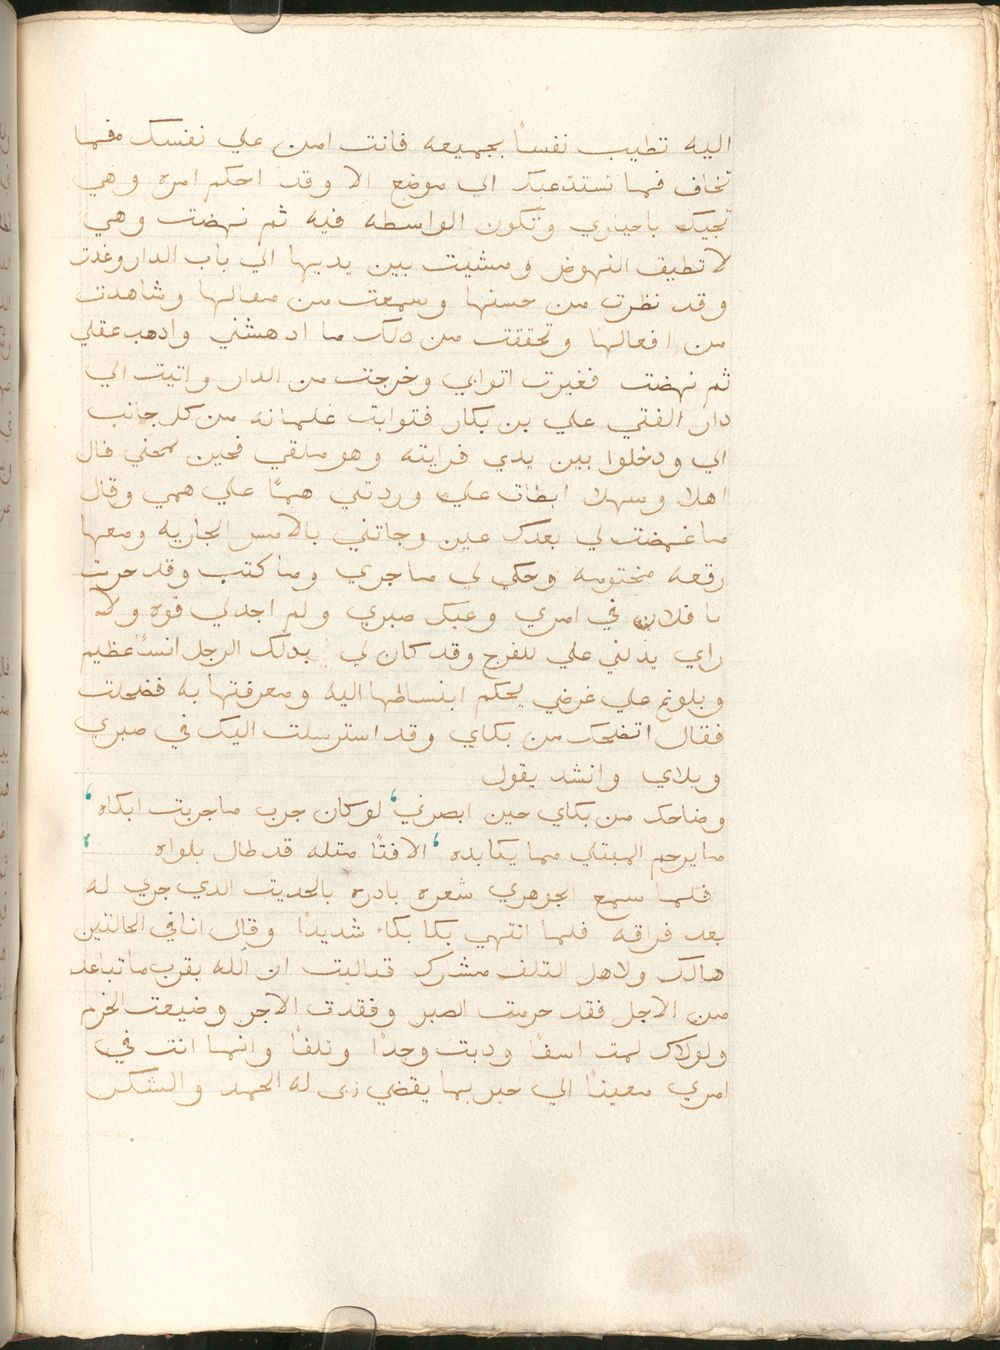 اليه تطيب نفسًا بجميعه فانت امن علي نفسك فمما
تخاف فما تستدعيك الي موضع الا وقد احكم امره وهي
تجيك باخيذي وتكون الواسطه فيه ثم نهضت وهي
لا تطيق النهوض ومشيت بين يديها الي باب الدار وعدت
وقد نظرت من حسنها وسمعت من مقالها وشاهدت
من افعالها وتحققت من دلك ما ادهشني وادهب عقلي
ثم نهضت فغيرت اتوابي وخرجت من الدار واتيت الي
دار الفتي علي بن بكار فتوابت غلمانه من كل جانب
الي ودخلوا بين يدي فرايته وهو ملقي فحين لمحني قال
اهلا وسهلا ابطات علي وردتني همًا علي همي وقال
ما غمضت لي بعدك عين وجاتني بالامس الجاريه ومعها
رقعه مختومه وحكي لي ما جري وما كتب وقد حرت
يا فلان في امري وعيك صبري ولم اجد لي قوه ولا
راي يدلني علي للفرج وقد كان لي بدلك الرجل انسًا عظيم
وبلوغ علي غرضي يحكم ابنساطها اليه ومعرفتها به فضحكت
فقال اتضحك من بكاي وقد استرسلت اليك في صبري
وبلاي وانشد يقول
وضاحك من بكاي حين ابصرني ‘ لو كان جرب ما جربت ابكاه ‘
ما يرحم المبتلي مما يكابده ‘ الا فتًا متله قد طال بلواه ‘
فلما سمع الجوهري شعره بادره بالحديت الدي جري له
بعد فراقه فلما انتهي بكا بكاء شديدًا وقال انا في الحالتين
هالك ولاهل التلف مشارك فياليت ان الله يقرب ما تباعد
من الاجل فقد حرمت الصبر وفقدت الاجر وضيعت الحزم
ولولاك لمت اسفًا ودبت وجدًا وتلفًا وانما انت في
امري معينًا الي حبر بما يقضي ربي له الحمد والشكر